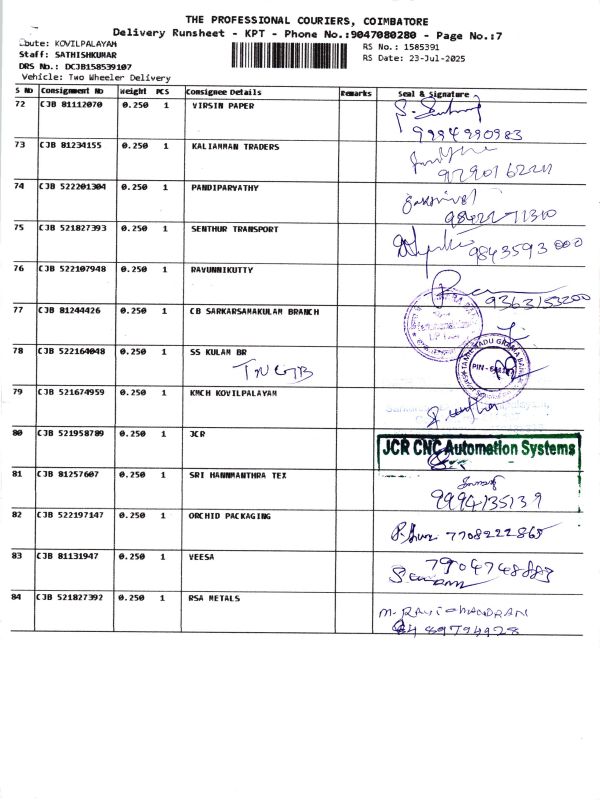 THE PROFESSIONAL COURIERS, COIMBATORE
Delivery Runsheet - KPT - Phone No.:9047080280 - Page No.:7
oute: KOVILPALAYAM
Staff: SATHISHKUMAR
DRS No.: DCJB158539107
Vehicle: Two Wheeler Delivery
RS No.: 1585391
RS Date: 23-Jul-2025
S No Consignment No Weight PCS Consignee Details Remarks Seal & Signature
72 CJB 81112070 0.250 1 VIRSIN PAPER
9994990983
73 CJB 81234155 0.250 1 KALIAMMAN TRADERS
74 CJB 522201304 0.250 1 PANDIPARVATHY
75 CJB 521827393 0.250 1 SENTHUR TRANSPORT
9843593000
76 CJB 522107948 0.250 1 RAVUNNIKUTTY
9363153200
77 CJB 81244426 0.250 1 CB SARKARSAMAKULAM BRANCH
78 CJB 522164048 0.250 1 SS KULAM BR
TNGB
TAMIL NADU GRAMA BANK
79 CJB 521674959 0.250 1 KMCH KOVILPALAYAM
80 CJB 521958789 0.250 1 JCR
JCR CNC Automation Systems
81 CJB 81257607 0.250 1 SRI HANNMANTHRA TEX
9994135139
82 CJB 522197147 0.250 1 ORCHID PACKAGING
7708222865
83 CJB 81131947 0.250 1 VEESA
84 CJB 521827392 0.250 1 RSA METALS
M. RAVICHANDRAN